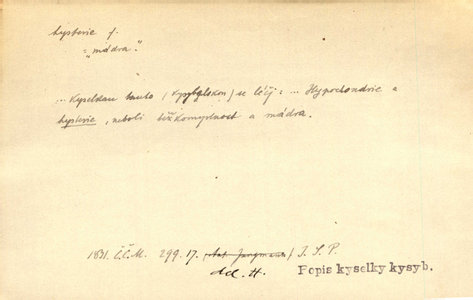 hysterie f.
= "mádra".
... Kyselkau tauto se léčj: ... Hypochondrie a
hysterie, neboli a mádra.
1831. Č.Č.M. 299. 17. /Ant. Jungmann/ J. S. P.
del. H.
Popis kyselky kysyb.